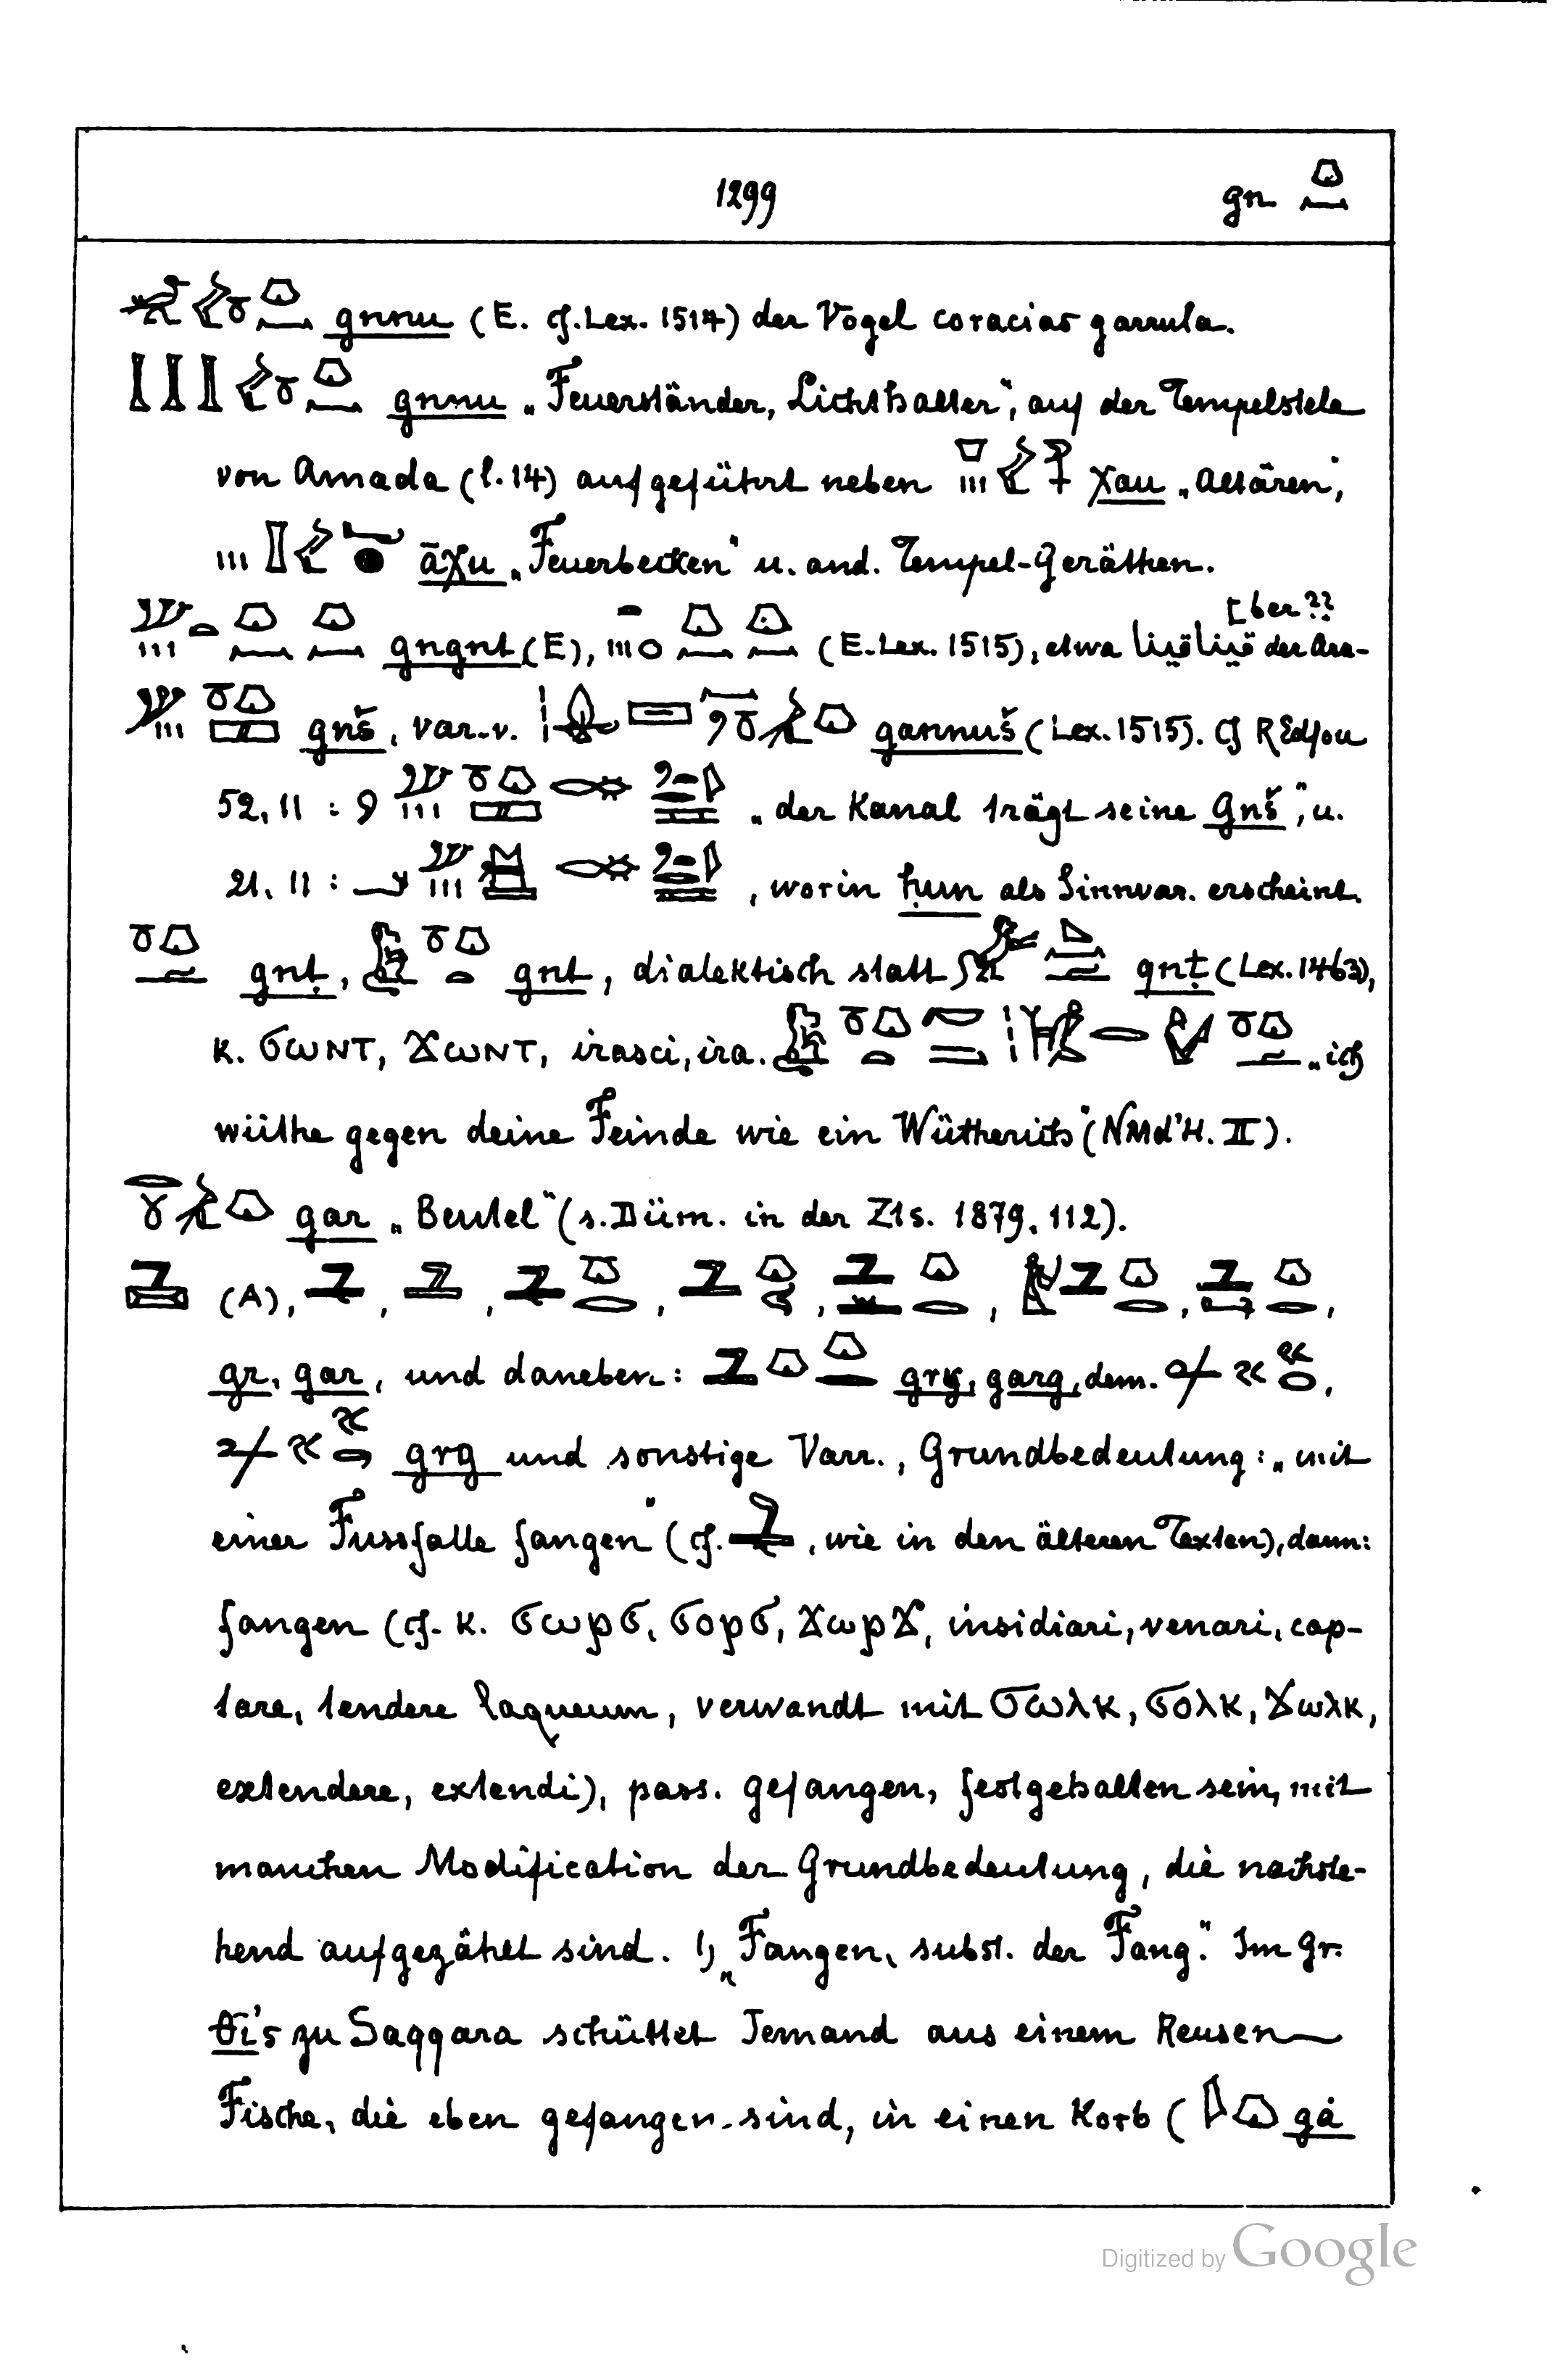 1299 gn.
gnnu (E. cf. Lex. 1514) der Vogel coracias garrula.
gnnu „Feuerständer, Lichthalter", auf der Tempelstele
von Amada (l. 14) aufgeführt neben χau „Altären",
āχu „Feuerbecken" u. and. Tempel-Geräthen.
[ber??
gngnt (E), (E. Lex. 1515), etwa der Ara-
gnš, var. v. gannuš (Lex. 1515). Cf REdfou
52, 11 : „der Kanal trägt seine Gnš", u.
21, 11 : , worin ḥun als Sinnvar. erscheint.
gnṭ, gnt, dialektisch statt qnṭ (Lex. 1463),
K. ϭⲱⲛⲧ, ϫⲱⲛⲧ, irasci, ira. „ich
wüthe gegen deine Feinde wie ein Wütherich" (NMd'H. II).
gar „Beutel" (s. Düm. in der Zts. 1879, 112).
(A), , , , , , , ,
gr, gar, und daneben: grg, garg, dem. ,
grg und sonstige Varr., Grundbedeutung: „mit
einer Fussfalle fangen" (cf. , wie in den älteren Texten), dann:
fangen (cf. K. ϭⲱⲣϭ, ϭⲟⲣϭ, ϫⲱⲣϫ, insidiari, venari, cap-
tare, tendere laqueum, verwandt mit ϭⲱⲗⲕ, ϭⲟⲗⲕ, ϫⲱⲗⲕ,
extendere, extendi), pass. gefangen, festgehalten sein, mit
manchen Modification der Grundbedeutung, die nachste-
hend aufgezählt sind. 1) „Fangen, subst. der Fang". Im Gr.
θi's zu Saqqara schüttet Jemand aus einem Reusen
Fische, die eben gefangen sind, in einen Korb ( gȧ
Digitized by Google